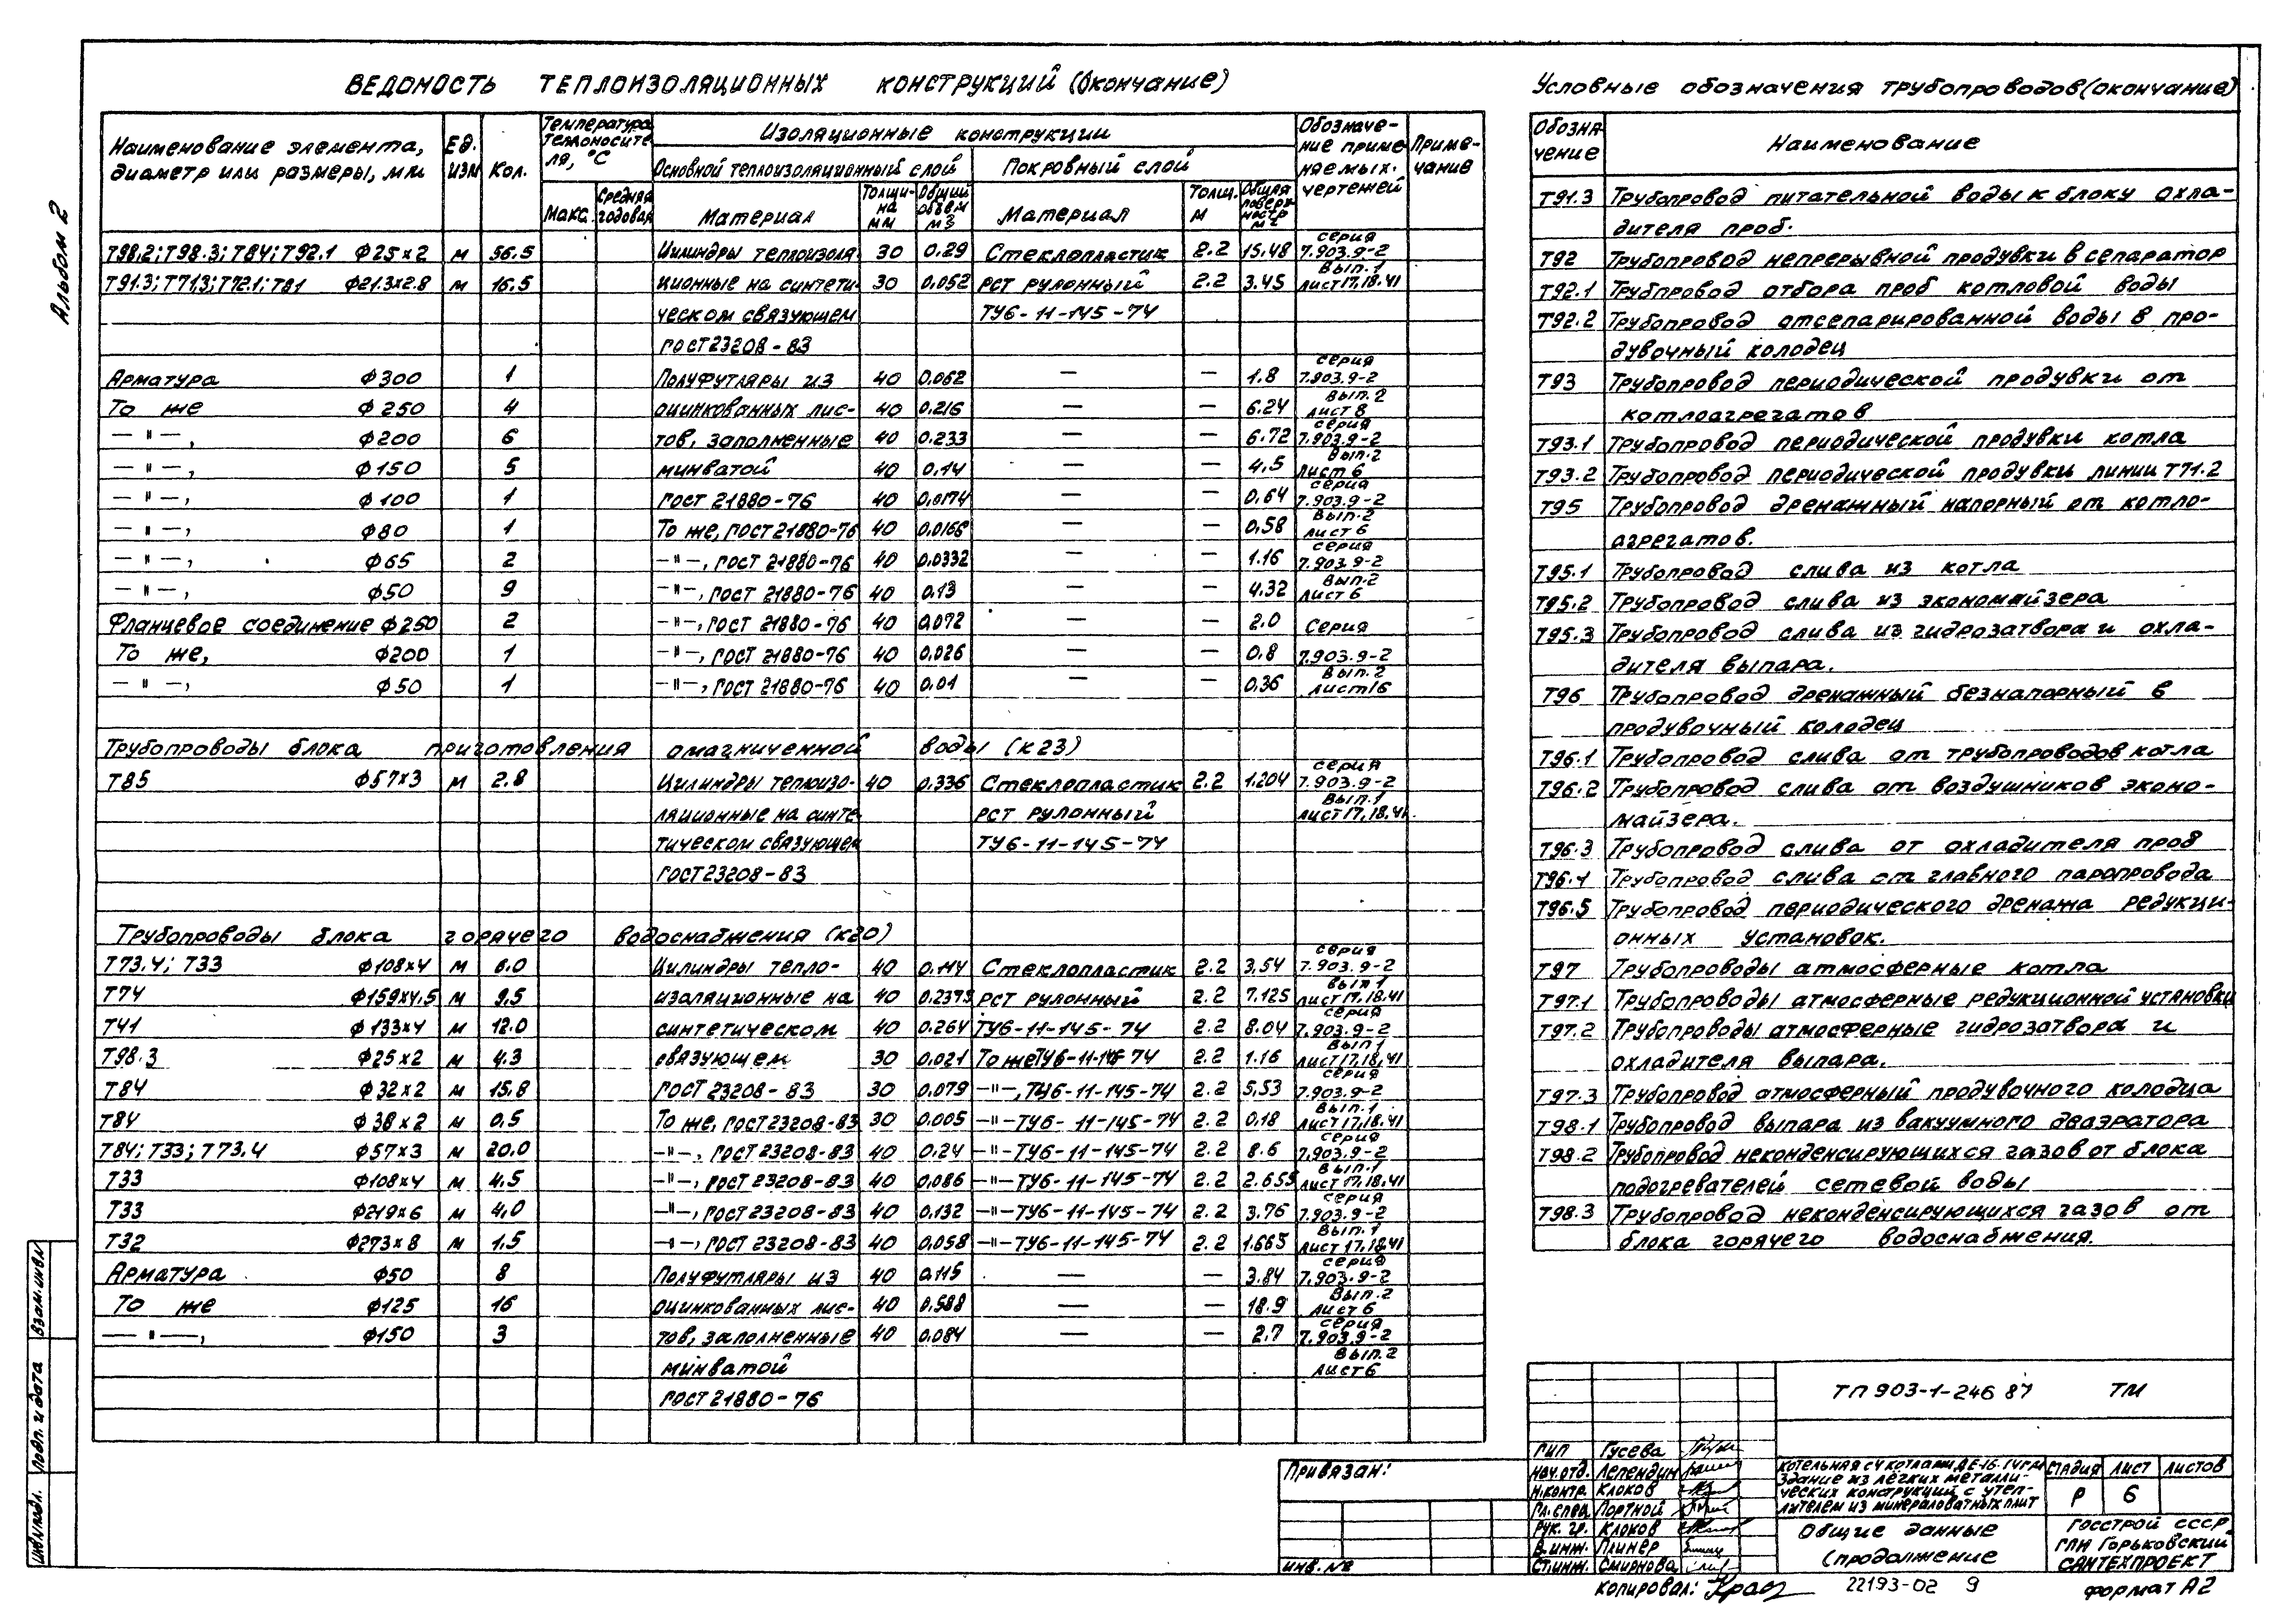 Альбом 2
ВЕДОМОСТЬ ТЕПЛОИЗОЛЯЦИОННЫХ КОНСТРУКЦИЙ (Окончание)
Наименование элемента, диаметр или размеры, мм | Ед. изм | Кол. | Температура теплоносителя, °С | Изоляционные конструкции | Обозначение применяемых чертежей | Примечание
Основной теплоизоляционный слой | Покровный слой
Макс. | Средняя годовая | Материал | Толщина мм | Общий объем м3 | Материал | Толщ. м | Общая поверхность м2
Т98.2; Т98.3; Т84; Т92.1 ф25×2 м 56.5 Цилиндры теплоизоля- 30 0.29 Стеклопластик 2.2 15.48 серия 7.903.9-2
Т91.3; Т71.3; Т72.1; Т81 ф21.3×2.8 м 16.5 ционные на синтети- 30 0.052 рст рулонный 2.2 3.45 Вып.1 лист 17,18,41
ческом связующем ТУ6-11-145-74
ГОСТ 23208-83
Арматура ф300 1 Полуфутляры из 40 0.062 — — 1.8 серия 7.903.9-2
То же ф250 4 оцинкованных лис- 40 0.216 — — 6.24 Вып.2 лист 8
—"—, ф200 6 тов, заполненные 40 0.233 — — 6.72 серия 7.903.9-2
—"—, ф150 5 минватой 40 0.14 — — 4.5 Вып.2 лист 6
—"—, ф100 1 ГОСТ 21880-76 40 0.0174 — — 0.64 серия 7.903.9-2
—"—, ф80 1 То же, ГОСТ 21880-76 40 0.0166 — — 0.58 Вып.2 лист 6
—"—, ф65 2 —"—, ГОСТ 21880-76 40 0.0332 — — 1.16 серия 7.903.9-2
—"—, ф50 9 —"—, ГОСТ 21880-76 40 0.13 — — 4.32 Вып.2 лист 6
Фланцевое соединение ф250 2 —"—, ГОСТ 21880-76 40 0.072 — — 2.0 Серия
То же, ф200 1 —"—, ГОСТ 21880-76 40 0.026 — — 0.8 7.903.9-2
—"—, ф50 1 —"—, ГОСТ 21880-76 40 0.01 — — 0.36 Вып.2 лист 16
Трубопроводы блока приготовления омагниченной воды (к23)
Т85 ф57×3 м 2.8 Цилиндры теплоизо- 40 0.336 Стеклопластик 2.2 1.204 серия 7.903.9-2
ляционные на синте- рст рулонный Вып.1 лист 17,18,41
тическом связующем ТУ6-11-145-74
ГОСТ 23208-83
Трубопроводы блока горячего водоснабжения (к20)
Т73.4; Т33 ф108×4 м 6.0 Цилиндры тепло- 40 0.114 Стеклопластик 2.2 3.54 серия 7.903.9-2
Т74 ф159×4.5 м 9.5 изоляционные на 40 0.2375 рст рулонный 2.2 7.125 вып 1 лист 17,18,41
Т41 ф133×4 м 12.0 синтетическом 40 0.264 ТУ6-11-145-74 2.2 8.04 серия 7.903.9-2
Т98.3 ф25×2 м 4.3 связующем 30 0.021 То же ТУ6-11-145-74 2.2 1.16 Вып 1 лист 17,18,41
Т84 ф32×2 м 15.8 ГОСТ 23208-83 30 0.079 —"—, ТУ6-11-145-74 2.2 5.53 серия 7.903.9-2
Т84 ф38×2 м 0.5 То же, ГОСТ 23208-83 30 0.005 —"— ТУ6-11-145-74 2.2 0.18 Вып.1 лист 17,18,41
Т84; Т33; Т73.4 ф57×3 м 20.0 —"—, ГОСТ 23208-83 40 0.24 —"— ТУ6-11-145-74 2.2 8.6 серия 7.903.9-2
Т33 ф108×4 м 4.5 —"—, ГОСТ 23208-83 40 0.086 —"— ТУ6-11-145-74 2.2 2.655 Вып.1 лист 17,18,41
Т33 ф219×6 м 4.0 —"—, ГОСТ 23208-83 40 0.132 —"— ТУ6-11-145-74 2.2 3.76 серия 7.903.9-2
Т32 ф273×8 м 1.5 —"—, ГОСТ 23208-83 40 0.058 —"— ТУ6-11-145-74 2.2 1.665 Вып.1 лист 17,18,41
Арматура ф50 8 Полуфутляры из 40 0.115 — — 3.84 серия 7.903.9-2
То же ф125 16 оцинкованных лис- 40 0.588 — — 18.9 Вып.2 лист 6
—"—, ф150 3 тов, заполненные 40 0.084 — — 2.7 серия 7.903.9-2
минватой Вып.2 лист 6
ГОСТ 21880-76
Условные обозначения трубопроводов (окончание)
Обозначение | Наименование
Т91.3 Трубопровод питательной воды к блоку охла-
дителя проб.
Т92 Трубопровод непрерывной продувки в сепаратор
Т92.1 Трубопровод отбора проб котловой воды
Т92.2 Трубопровод отсепарированной воды в про-
дувочный колодец
Т93 Трубопровод периодической продувки от
котлоагрегатов
Т93.1 Трубопровод периодической продувки котла
Т93.2 Трубопровод периодической продувки линии Т71.2
Т95 Трубопровод дренажный напорный от котло-
агрегатов.
Т95.1 Трубопровод слива из котла
Т95.2 Трубопровод слива из экономайзера
Т95.3 Трубопровод слива из гидрозатвора и охла-
дителя выпара.
Т96 Трубопровод дренажный безнапорный в
продувочный колодец
Т96.1 Трубопровод слива от трубопроводов котла
Т96.2 Трубопровод слива от воздушников эконо-
майзера.
Т96.3 Трубопровод слива от охладителя проб
Т96.4 Трубопровод слива от главного паропровода
Т96.5 Трубопровод периодического дренажа редукци-
онных установок.
Т97 Трубопроводы атмосферные котла
Т97.1 Трубопроводы атмосферные редукционной установки
Т97.2 Трубопроводы атмосферные гидрозатвора и
охладителя выпара.
Т97.3 Трубопровод атмосферный продувочного колодца
Т98.1 Трубопровод выпара из вакуумного деаэратора
Т98.2 Трубопровод неконденсирующихся газов от блока
подогревателей сетевой воды
Т98.3 Трубопровод неконденсирующихся газов от
блока горячего водоснабжения.
ТП 903-1-246 87 ТМ
Привязан:
Инв. №
ГИП Гусева
Нач.отд. Лепендин
Н.контр. Клоков
Гл.спец Портной
Рук. гр. Клоков
В.инж. Плинер
Ст.инж. Смирнова
Котельная с 4 котлами ДЕ-16-14ГМ
Здание из лёгких металли-
ческих конструкций с утеп-
лителем из минераловатных плит
Стадия Лист Листов
Р 6
Общие данные
(продолжение
Госстрой СССР
ГПИ Горьковский
Сантехпроект
Копировал:
22193-02 9
Формат А2
Взам.инв.№
Подп. и дата
Инв.№подл.